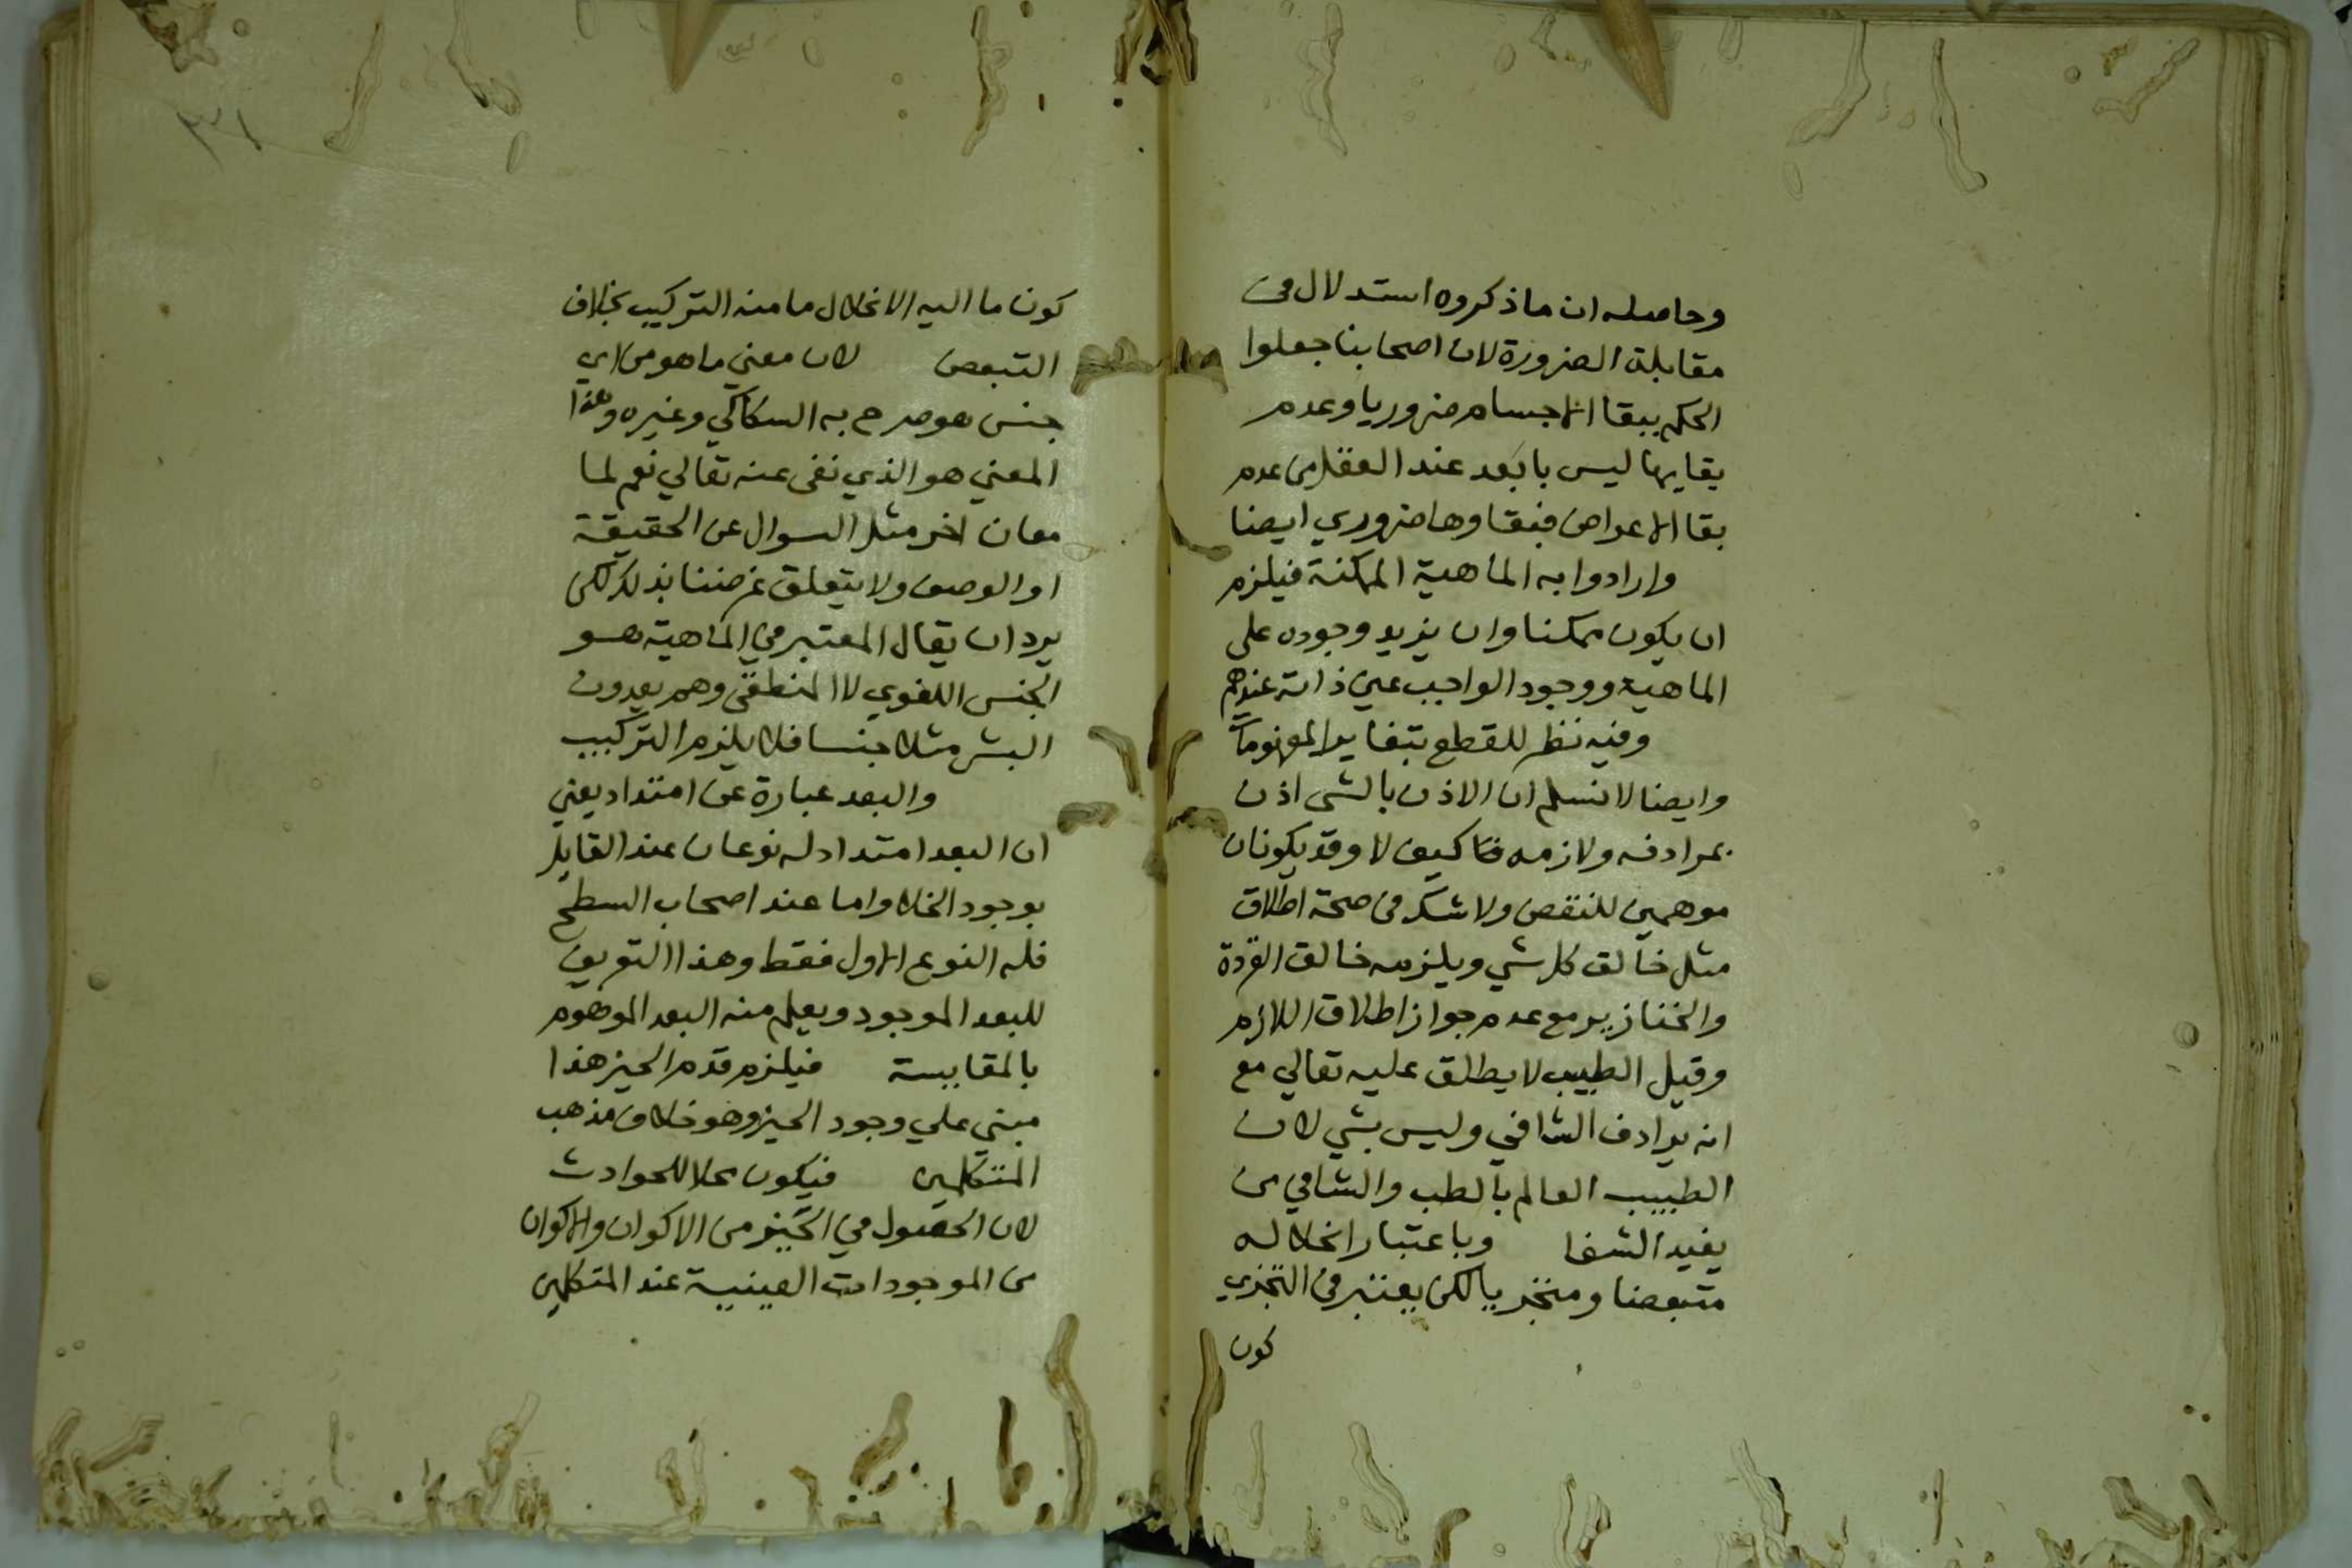 وحاصله ان ما ذكروه استدلال فى
مقابلة الضرورة لان اصحابنا جعلوا
الحكم ببقا الاجسام ضروريا وعدم
بقايها ليس بابعد عند العقل من عدم
بقا الاعراض فبقاوها ضروري ايضا
وارادوا به الماهية الممكنة فيلزم
ان يكون ممكنا وان يزيد وجوده على
الماهية ووجود الواجب عين ذاته عندهم
وفيه نظر للقطع بتغاير المفهومات
وايضا لا نسلم ان الاذن بالشى اذن
بمرادفه ولازمه فتا كيف لا وقد يكونان
موهمين للنقص ولا شك فى صحة اطلاق
مثل خالق كل شي ويلزمه خالق القردة
والخنازير مع عدم جواز اطلاق اللازم
وقيل الطبيب لا يطلق عليه تعالي مع
انه يرادف الشافي وليس بشي لان
الطبيب العالم بالطب والشافي من
يفيد الشفا وباعتبار انحلاله
متبعضا ومتجزيا لكن يعتبر فى التجزي
كون
٣١
كون ما اليه الانحلال ما منه التركيب بخلاف
التبعض لان معني ما هو من اي
جنس هو صرح به السكاكي وغيره وهذا
المعني هو الذي نفى عنه تعالي نعم لما
معان اخر مثل السوال عن الحقيقة
او الوصف ولا يتعلق غرضنا بذلك لكن
يرد ان يقال المعتبر في الماهية هو
الجنس اللغوي لا المنطقى وهم يعدون
البشر مثلا جنسا فلا يلزم التركيب
والبعد عبارة عن امتداد يعني
ان البعد امتداد له نوعان عند القايل
بوجود الخلا واما عند اصحاب السطح
فله النوع الاول فقط وهذا التعريف
للبعد الموجود ويعلم منه البعد الموهوم
بالمقايسة فيلزم قدم الحيز هذا
مبني علي وجود الحيز وهو خلاف مذهب
المتكلمين فيكون محلا للحوادث
لان الحصول في الحيز من الاكوان والاكوان
من الموجودات العينية عند المتكلمين